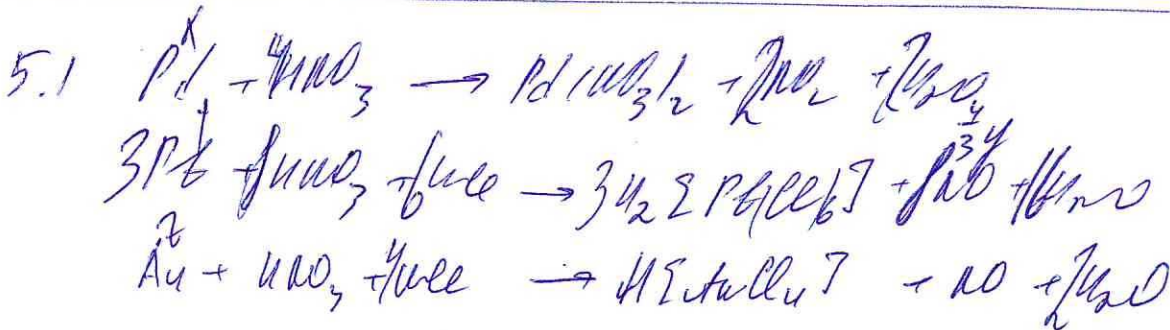 5.1 Pd + 4HNO3 → Pd(NO3)2 + 2NO2 + 2H2O
3Pt + HNO3 + HCl → 3H2[PtCl6] + NO + H2O
Au + HNO3 + 4HCl → H[AuCl4] + NO + 2H2O